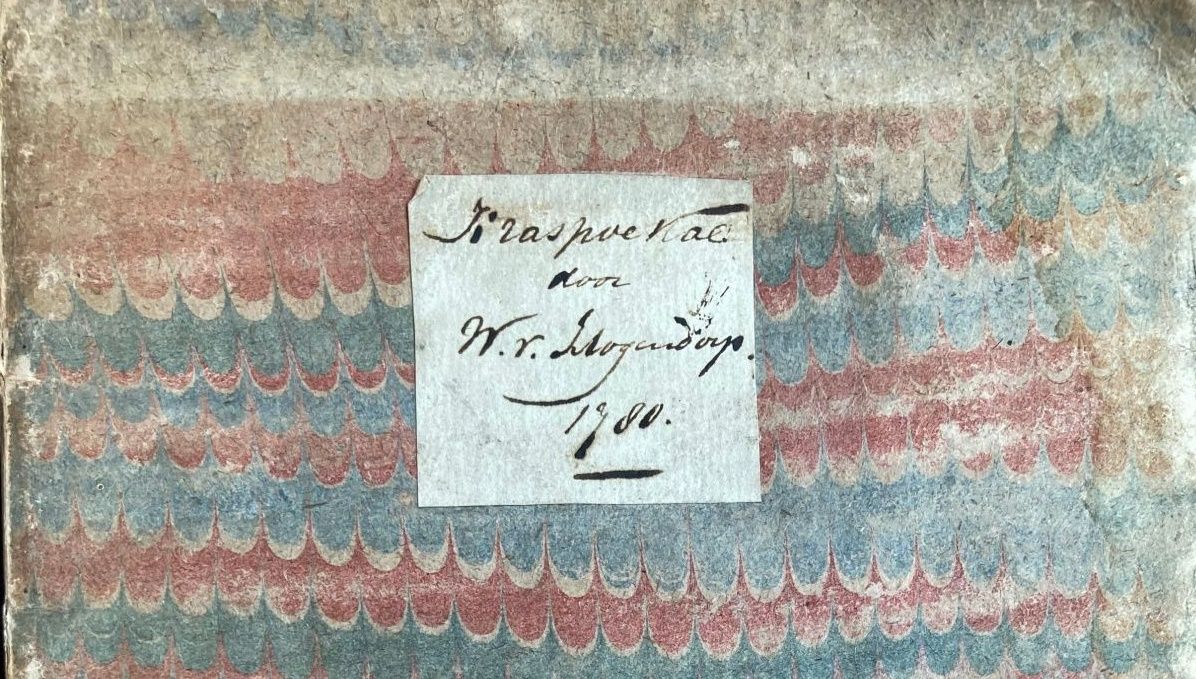 Kraspoekae
door
W. v. Hogendorp.
1780.